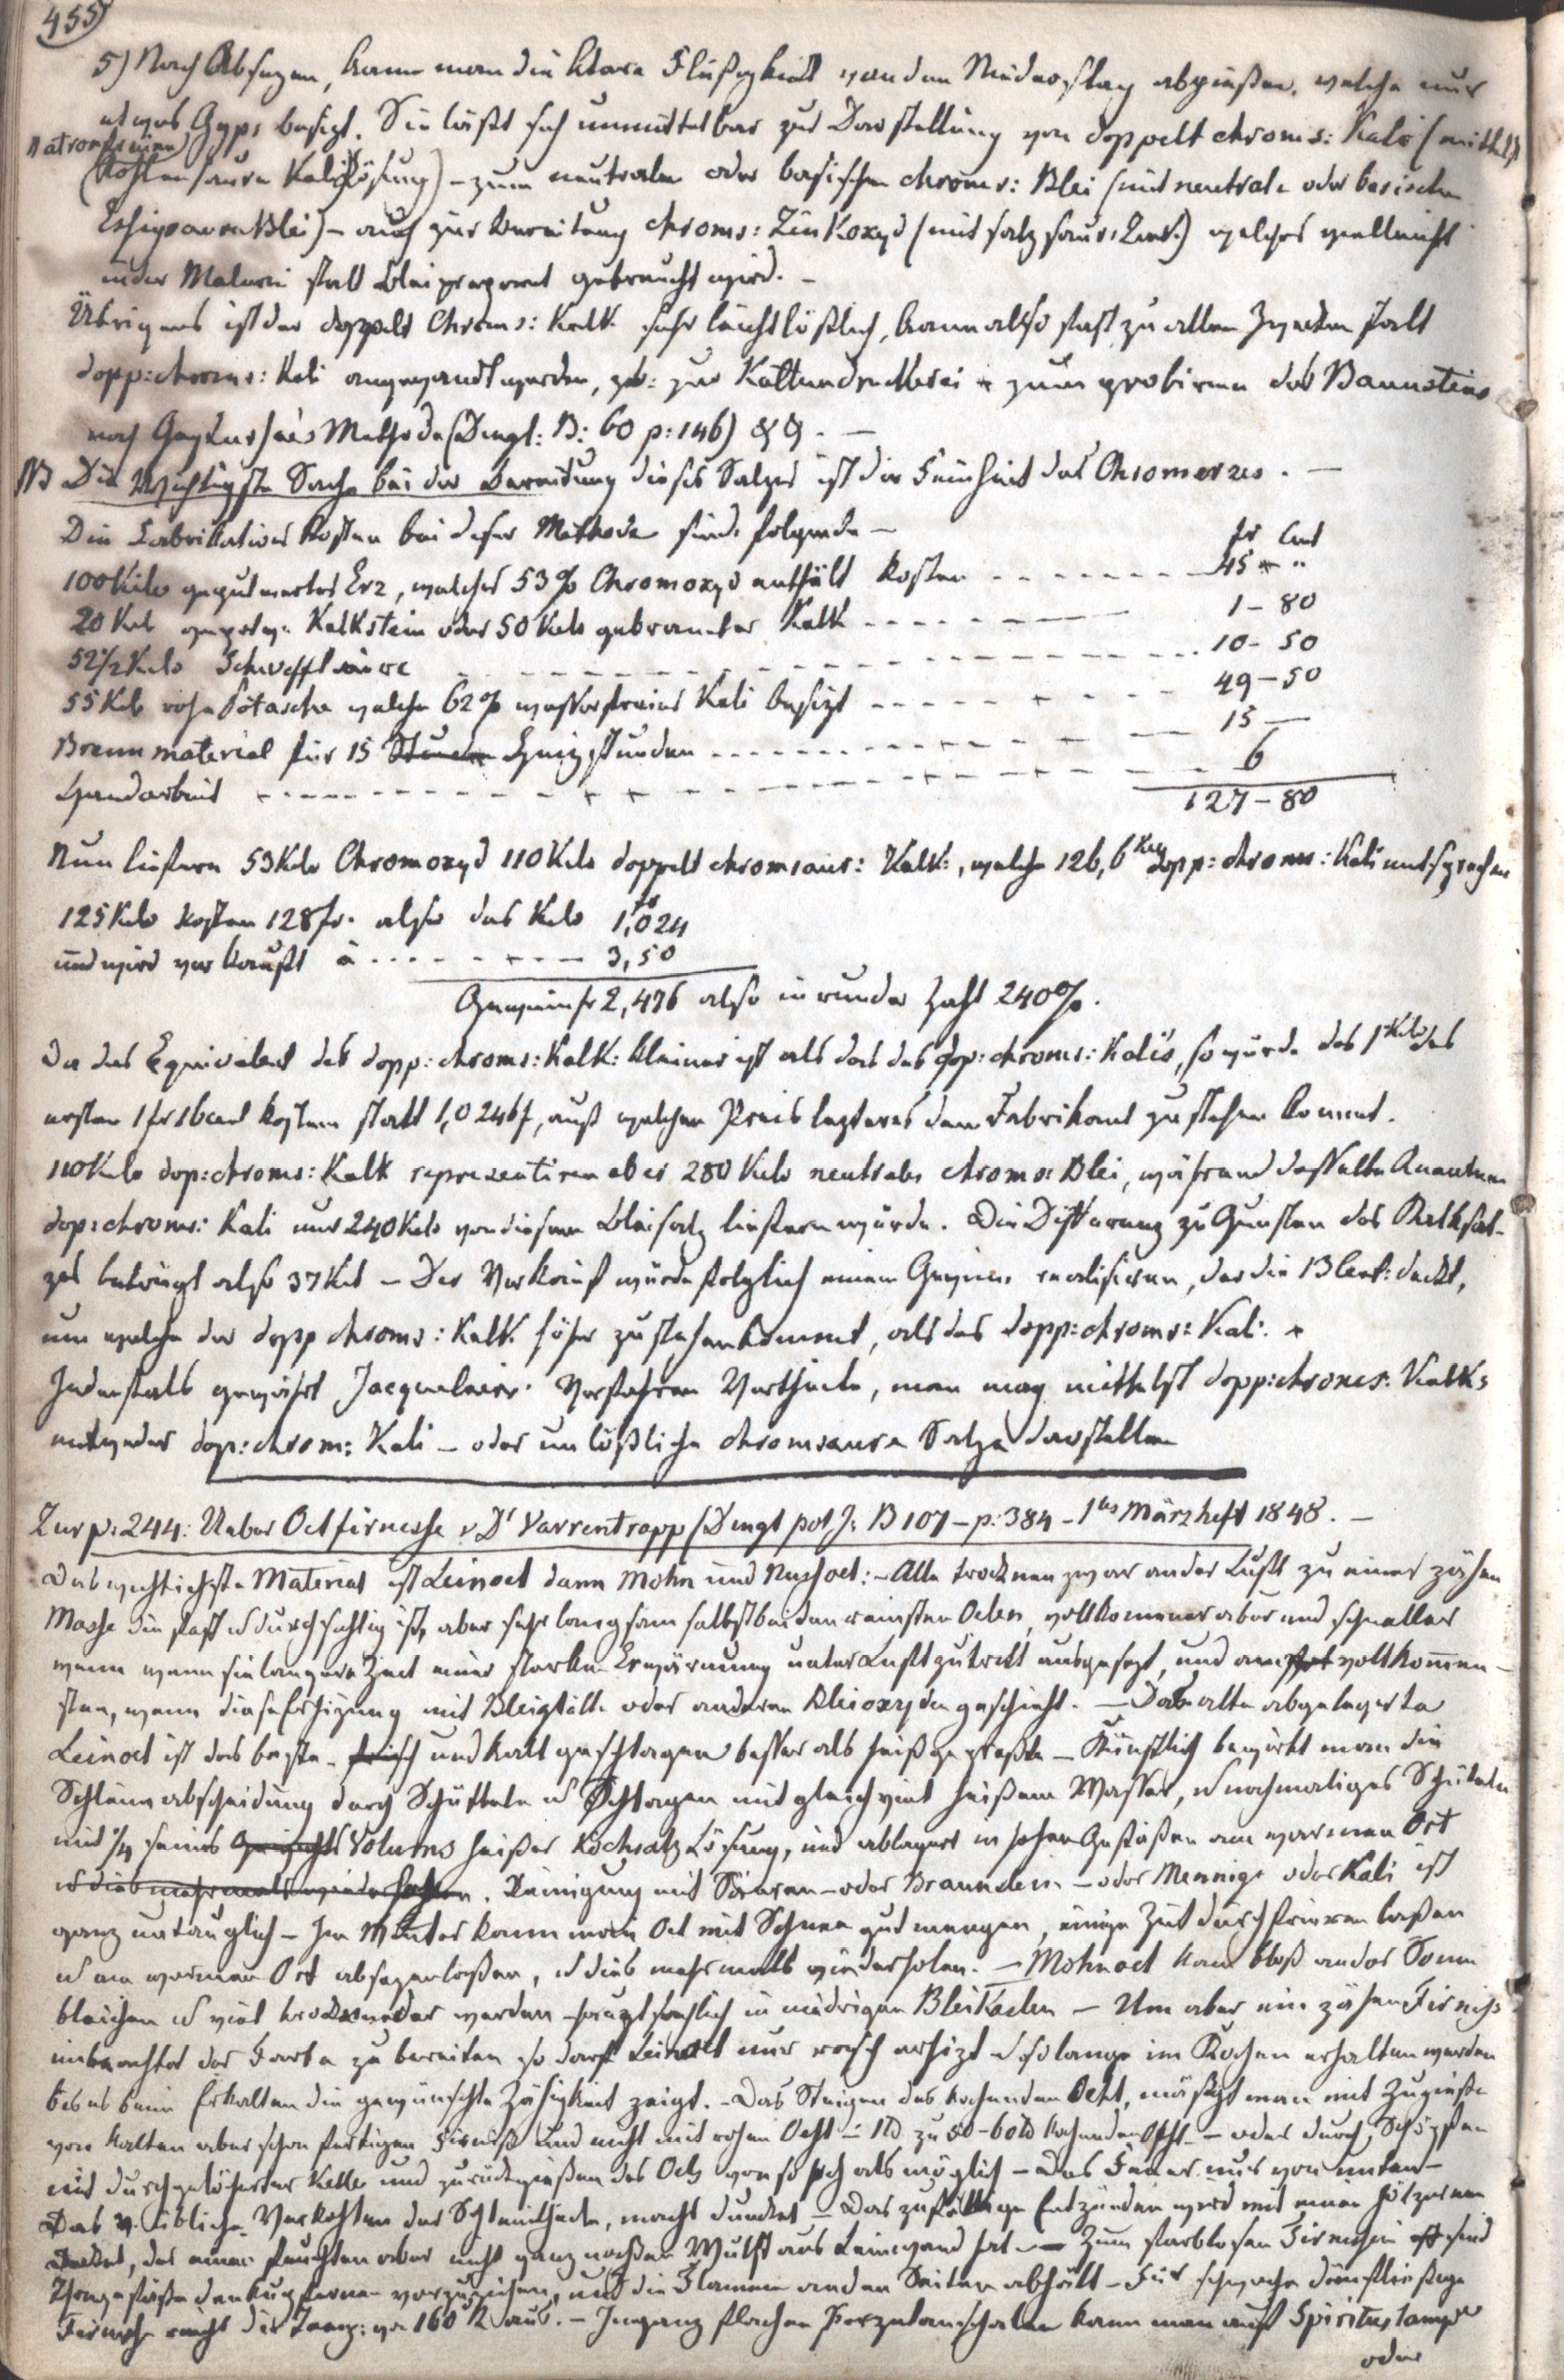 455
5) Nach Absezen, kann man die klare Flüßigkeit von dem Niederschlag abgießen, welche nur
etwas Gyps besizt. Sie läßt sich unmittelbar zur Darstellung von doppelt chroms: Kali (mittelst
(Kohlensaure Kalilösung) – zum neutralen oder basischen chroms: Blei (mit neutrale oder basischen
Essigsauren Blei) – auch zur Bereitung chroms: Zinkoxyd (mit salzsaur: Zink.) welches vielleicht
in der Malerei statt Bleipreparat gebraucht wird. –
Übrigens ist der doppelt Chroms: Kalk. sehr leichtlößlich, kann also fast zu allen Zwecken statt
dopp: chroms: Kali angewandt werden, zb: zur Kattundruckerei zum probiren des Braunsteins
nach Gay Lussac's Methode (Dingl: B: 60 p: 146) &&. –
NB Die Wichtigste Sache bei der Bereitung dieses Salzes ist die Feinheit des Chromerzes. –
Die Fabrikations Kosten bei dieser Methode sind folgende –
fr Cent
100 Kilo gepulvertes Erz, welches 53% Chromoxyd enthält kosten 45 "
20 Kil Kalkstein oder 50 Kilo gebrannter Kalk 1 – 80
52½ Kilo Schweffelsäure 10 – 50
55 Kilo rohe Potasche welche 62% wasserfreies Kali besizt 49 – 50
Brennmaterial für 15 Stunden Heizstunden 15 –
Handarbeit 6
127 – 80
Nun liefern 53 Kilo Chromoxyd 110 Kilo doppelt chromsaur: Kalk:, welche 126,6 Kilog dopp: chroms: Kali entsprechen
125 Kilo kosten 128 fr. also das Kilo 1,024 fr
und wird verkauft à 3,50
Gewinn fr 2,476 also in runder Zahl 240%.
Da das Equivalent des dopp: chroms: Kalk: kleiner ist als das des dop: chroms: Kali's, so würde das 1 Kilo des
ersten 1 fr 16 cent kosten statt 1,0246 f, auf welchen Preis lezteres dem Fabrikant zu stehen kommt.
110 Kilo dop: chroms: Kalk representiren aber 280 Kilo neutrales chroms: Blei, während dasselbe Quantum
dop: chroms: Kali nur 240 Kilo von diesem Bleisalz liefern würde. Die Differenz zu Gunsten des Kalksal-
zes beträgt also 37 Kil – Der Verkauf würde folglich einen Gewinn realisiren, der die 13 Cent: deckt,
um welche der dopp chroms: Kalk höher zu stehen kommt, als das dopp: chroms: Kali.
Jedenfalls gewährt Jacquelains Verfahren Vortheile, man mag mittelst dopp: chroms: Kalks
entweder dop: chrom: Kali – oder unlößliche chromsaure Salze darstellen
Zur p: 244: Ueber Oelfirnesse v Dr Varrentrapp (Dingl pol J: B 107 – p: 384 – 1tes Märzheft 1848. –
Das wichtichste Material ist Leinoel dann Mohn und Nussoel: – Alle trocknen zwar an der Luft zu einer zähen
Masse die fast durchsichtig ist, aber sehr langsam selbst bei den reinsten Oelen, vollkommener aber und schneller
wenn wenn sie langere Zeit einer starken Erwärmung unter Luftzutritt ausgesezt, und am vollkommen-
sten, wenn diese Erhizung mit Bleiglätte oder anderen Bleioxyden geschieht. – Das alte abgelagerte
Leinoel ist das beste – frisch und kalt geschlagen besser als heißgepreßte – Künstlich bewirkt man die
Schleimabscheidung durch Schütteln u Schlagen mit gleichviel heißem Wasser, u nochmaliges Schüteln
mit ¼ seines Gewichts Volums heißer Kochsalz Lösung, und ablagert in hohen Gefäßen am warmen Ort
u dies mehrmals wiederholen. Reinigung mit Säuren – oder Braunstein – oder Mennige oder Kali ist
ganz untauglich – Im Winter kann man Oel mit Schnee gut mengen, einige Zeit durchfrieren laßen
u am warmen Ort absezen laßen, u dies mehrmals wiederholen. – Mohnoel kann bloß an der Sonne
bleichen u viel trocknender werden hauptsechlich in niedrigen Bleikasten – Um aber ein zähen Firniss
unbeachtet der Farbe zu bereiten so darf Leinoel nur rasch erhizt u solange im Kochen erhalten werden
bis es beim Erkalten die gewünschte Zähigkeit zeigt. – Das Steigen des kochenden Oels, mäßigt man mit Zugieße
von kalten aber schon fertigen Firniß und nicht mit rohen Oehl – zu 50 – 60 kochenden Oehl – oder durch Schöpfen
mit durchgelöcherter Kelle und zurückgießen des Oels von so hoch als möglich – Das Feuer nur von unten –
Das übliche Verkohlen der Schleimtheile, macht dunkel – Das zufällige Entzünden wird mit einem hölzernen
Deckel, der einen feuchten aber nicht ganz naßen Wulst aus Leinwand hat – Zum farblosen Firnissen sind
Thongefäße den kupfernen vorzuziehen, und die Flamme an den Seiten abhält – Für schwache dünnflüßige
Firnisse reicht die Temp: von 160° R aus. – In ganz flachen Porzelanschalen kann man auf Spirituslampe
oder